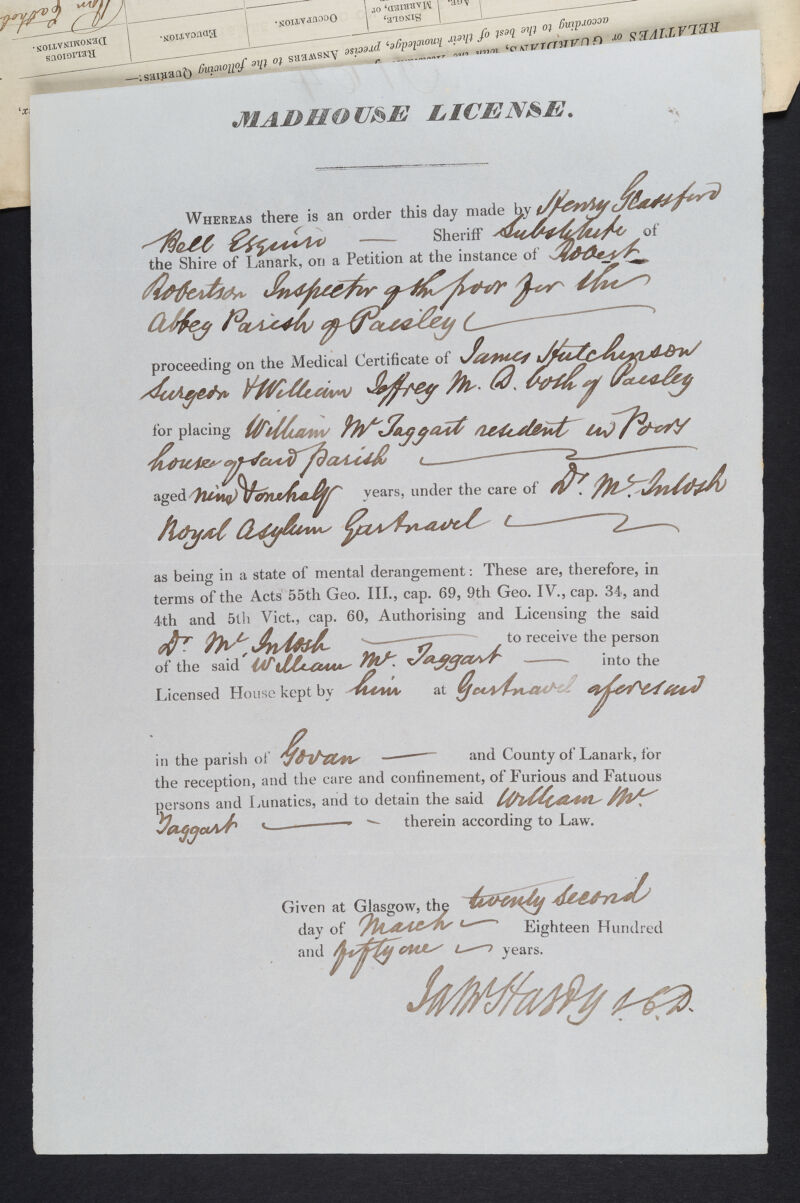 RELATIVES or GUARDIANS, with the
according to the best of their knowledge, precise ANSWERS to the following QUERIES:—
AGE.
SINGLE,
MARRIED, or
OCCUPATION.
EDUCATION.
RELIGIOUS
DENOMINATION.
MADHOUSE LICENSE.
WHEREAS there is an order this day made by Henry Glassford
Bell Esquire — Sheriff Substitute of
the Shire of Lanark, on a Petition at the instance of Robert
Robertson Inspector of the poor for the
Abbey Parish of Paisley
proceeding on the Medical Certificate of James Hutchinson
Surgeon & William Jeffrey M. D. both of Paisley
for placing William Mc Taggart resident in Poors
house of said parish
aged nine & one half years, under the care of Dr. Mc. Intosh
Royal Asylum Gartnavel
as being in a state of mental derangement: These are, therefore, in
terms of the Acts 55th Geo. III., cap. 69, 9th Geo. IV., cap. 34, and
4th and 5th Vict., cap. 60, Authorising and Licensing the said
Dr. Mc. Intosh — to receive the person
of the said William Mc. Taggart — into the
Licensed House kept by him at Gartnavel aforesaid
in the parish of Govan — and County of Lanark, for
the reception, and the care and confinement, of Furious and Fatuous
persons and Lunatics, and to detain the said William Mc.
Taggart — therein according to Law.
Given at Glasgow, the twenty second
day of March Eighteen Hundred
and fifty one years.
Ja Mc Hardy